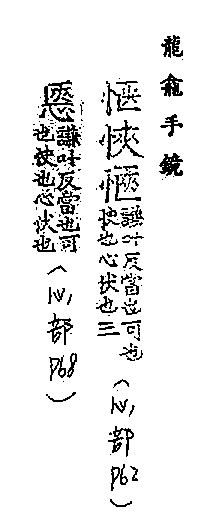 龍龕手鏡
愜悏㥦謙叶反當也可也快也心伏也三(心部P62)
𢛍謙叶反當也可也快也心伏也(心部P68)